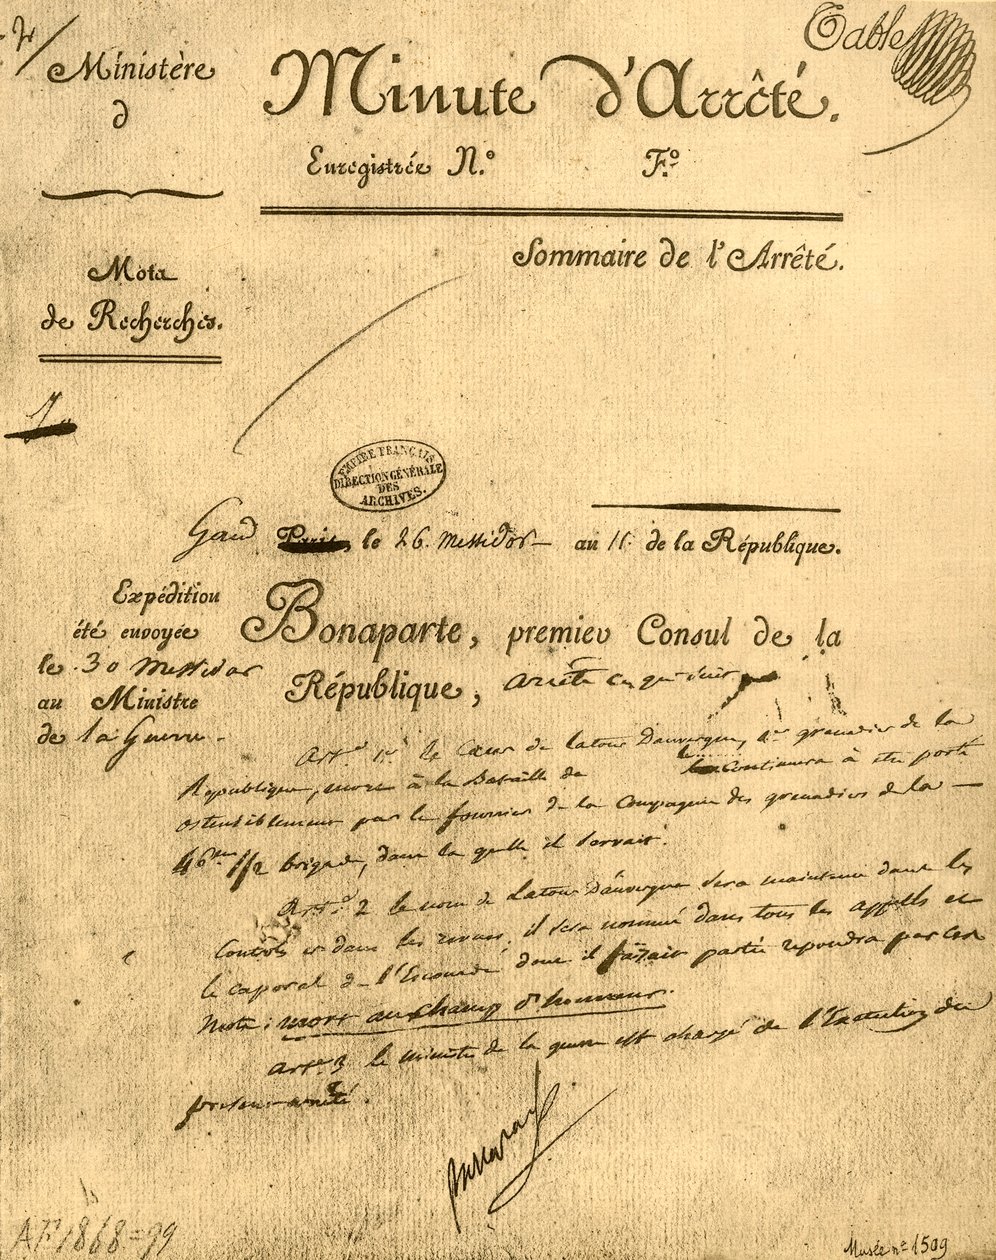 2
Table
Ministère
d
Minute d'Arrêté.
Enregistrée N.º F.º
Sommaire de l'Arrêté.
Mots
de Recherches.
EMPIRE FRANÇAIS
DIRECTION GÉNÉRALE
DES
ARCHIVES.
Gand Paris, le 26 Messidor an 11 de la République.
Expédition
été envoyée
le 30 Messidor
au Ministre
de la Guerre.
Bonaparte, premier Consul de la
République, arrête ce qui suit
Art. 1er le Cœur de latour Dauvergne, 1er grenadier de la
République, mort à la Bataille de continuera à être porté
ostensiblement par le fourrier de la Compagnie des grenadiers de la
46me 1/2 brigade, dans la quelle il servait.
Art. 2 le nom de Latour Dauvergne sera maintenu dans les
Controls et dans les revues; il sera nommé dans tous les appels et
le caporal de l'Escouade dont il faisait partie repondra par ces
Mots: mort au champ d'honneur.
Art. 3 le ministre de la guerre est chargé de l'Execution du
présent arrêté.
AF 1868=99
Musée nº 1509